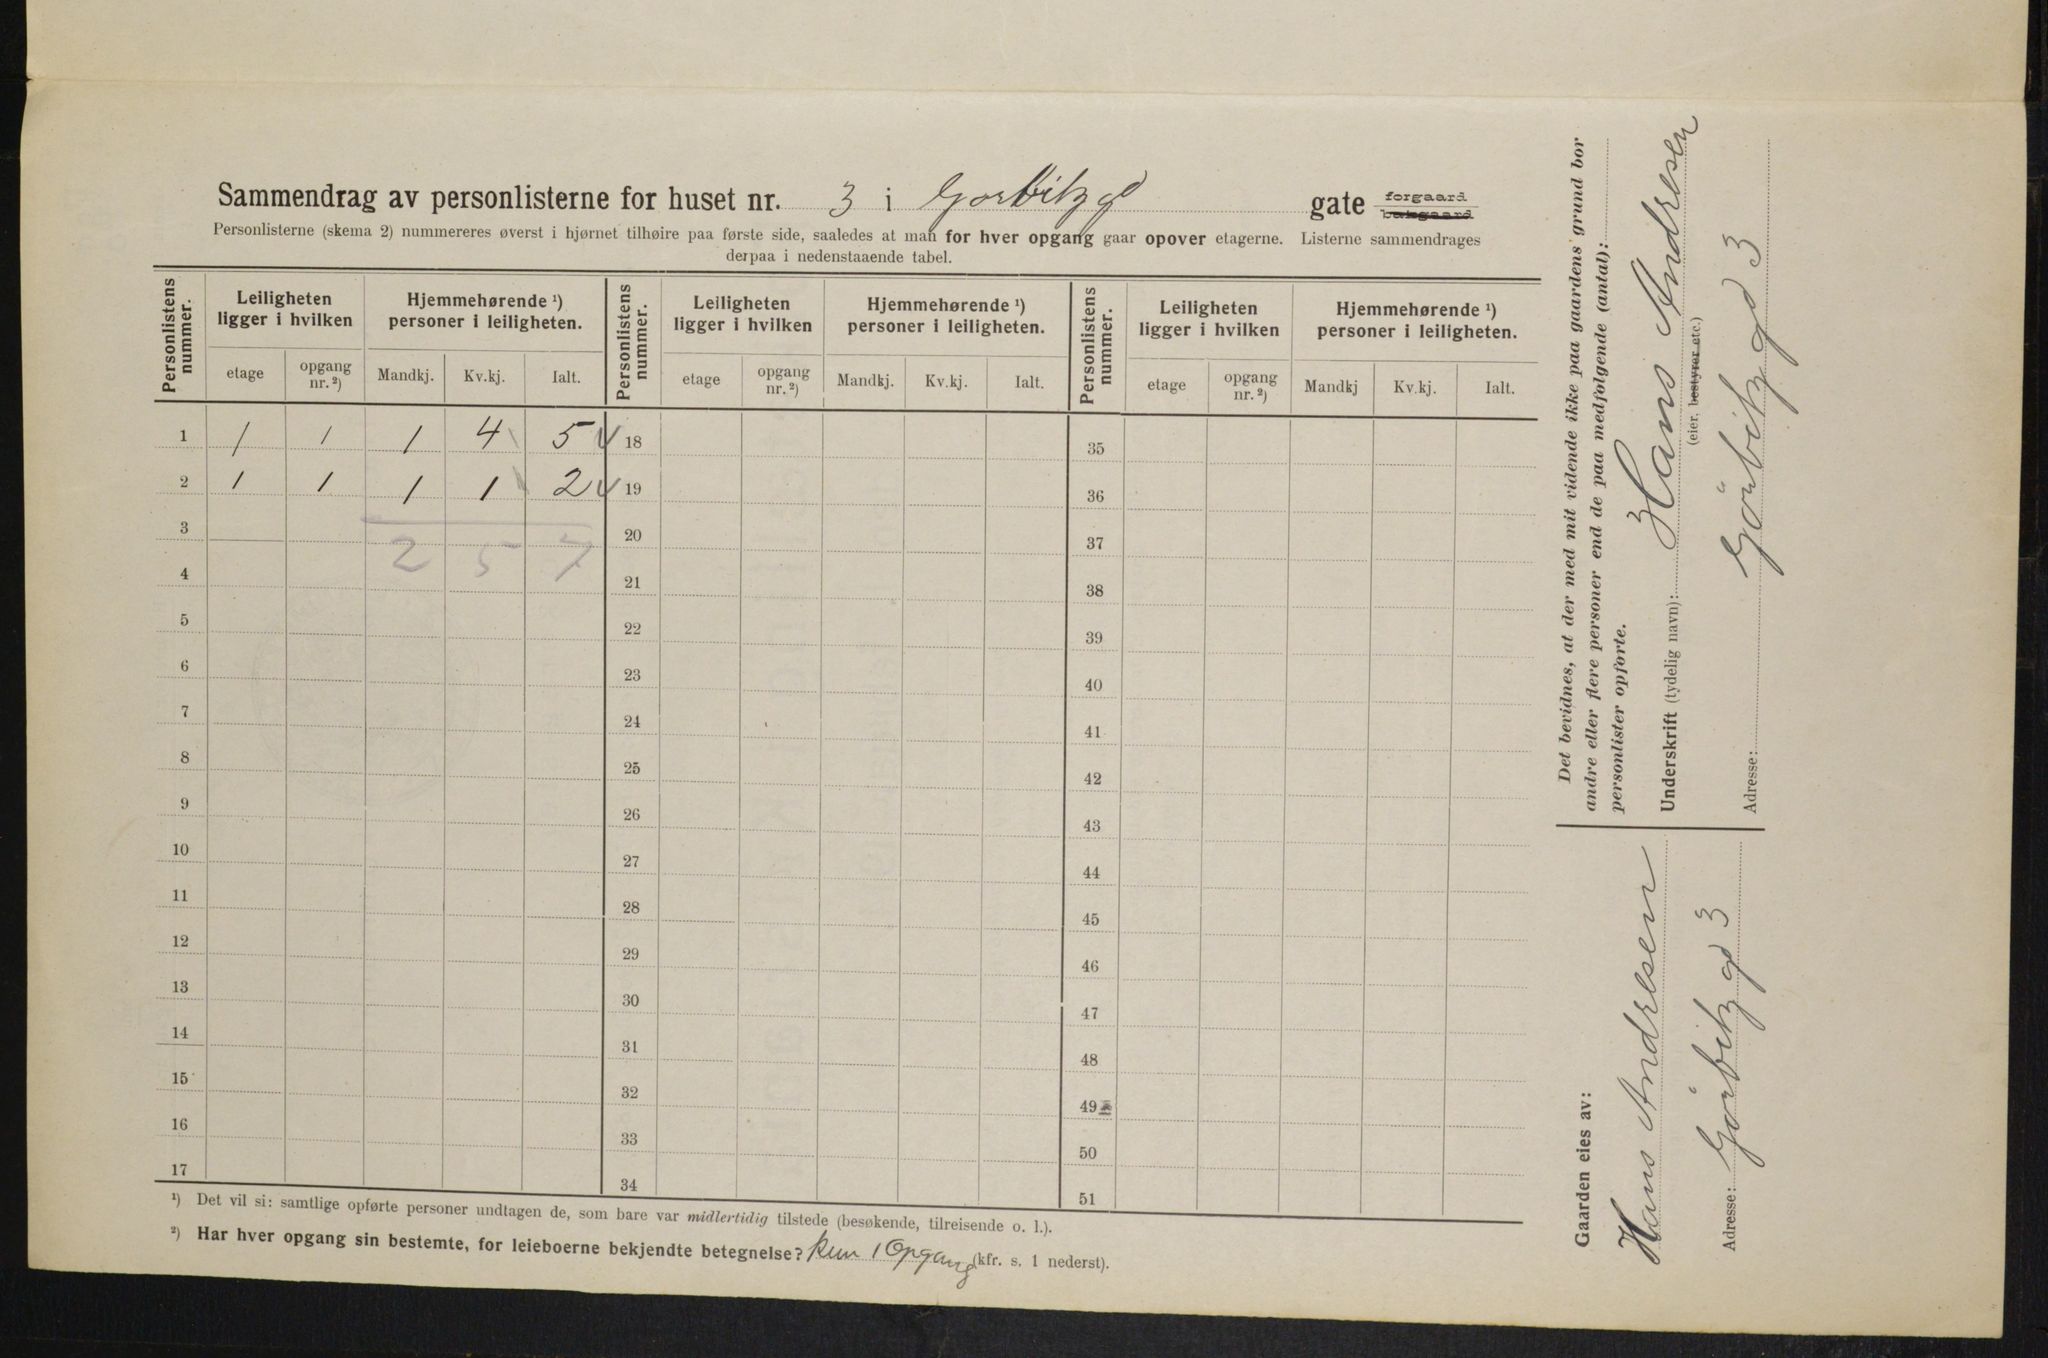 Sammendrag av personlisterne for huset nr. 3 i Gørbitz gd gate forgaard
bakgaard
Personlisterne (skema 2) nummereres øverst i hjørnet tilhøire paa første side, saaledes at man for hver opgang gaar opover etagerne. Listerne sammendrages
derpaa i nedenstaaende tabel.
Personlistens nummer. Leiligheten ligger i hvilken Hjemmehørende ¹) personer i leiligheten. Personlistens nummer. Leiligheten ligger i hvilken Hjemmehørende ¹) personer i leiligheten. Personlistens nummer. Leiligheten ligger i hvilken Hjemmehørende ¹) personer i leiligheten.
etage opgang nr. ²) Mandkj. Kv.kj. Ialt. etage opgang nr. ²) Mandkj. Kv.kj. Ialt. etage opgang nr. ²) Mandkj Kv.kj. Ialt.
1 1 1 1 4 5 18 35
2 1 1 1 1 2 19 36
3 20 37
2 5 7
4 21 38
5 22 39
6 23 40
7 24 41
8 25 42
9 26 43
10 27 44
11 28 45
12 29 46
13 30 47
14 31 48
15 32 49
16 33 50
17 34 51
¹) Det vil si: samtlige opførte personer undtagen de, som bare var midlertidig tilstede (besøkende, tilreisende o. l.).
²) Har hver opgang sin bestemte, for leieboerne bekjendte betegnelse? kun 1 Opgang (kfr. s. 1 nederst).
Det bevidnes, at der med mit vidende ikke paa gaardens grund bor
andre eller flere personer end de paa medfølgende (antal):
personlister opførte.
Underskrift (tydelig navn): Hans Andresen
(eier, bestyrer etc.)
Adresse: Gørbitz gd 3
Gaarden eies av:
Hans Andresen
Adresse: Gørbitz gd 3